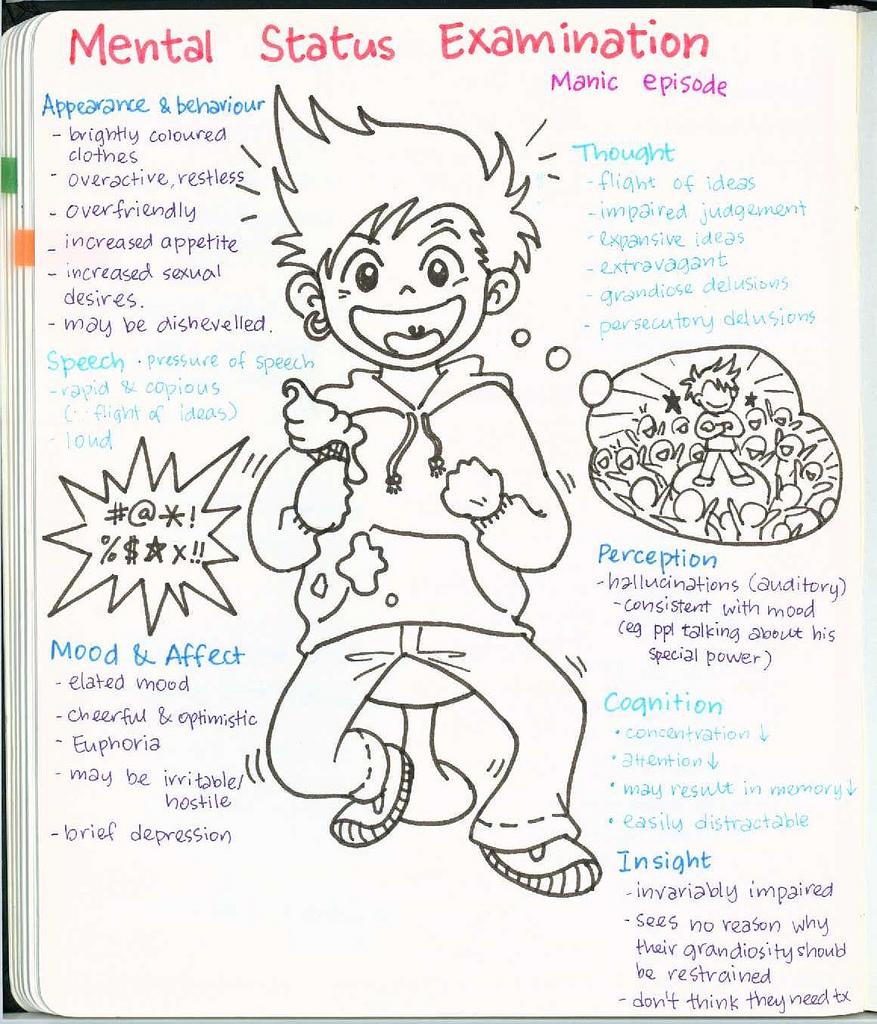 Mental Status Examination
Manic episode
Appearance & behaviour
- brightly coloured
clothes
- overactive, restless
- overfriendly
- increased appetite
- increased sexual
desires.
- may be dishevelled.
Speech · pressure of speech
- rapid & copious
(∵ flight of ideas)
- loud
#@*!
%$★x!!
Mood & Affect
- elated mood
- cheerful & optimistic
- Euphoria
- may be irritable/
hostile
- brief depression
Thought
- flight of ideas
- impaired judgement
- expansive ideas
- extravagant
- grandiose delusions
- persecutory delusions
Perception
- hallucinations (auditory)
- consistent with mood
(eg ppl talking about his
special power)
Cognition
• concentration ↓
• attention ↓
• may result in memory ↓
• easily distractable
Insight
- invariably impaired
- sees no reason why
their grandiosity should
be restrained
- don't think they need tx